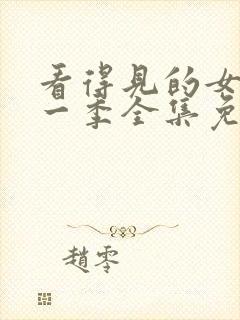 看得见的女
一季全集免
趙零